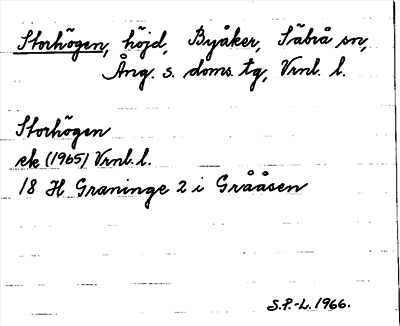 Storhögen, höjd, Byåker, Säbrå sn,
Ång. s. doms. tg, Vrnl. l.
Storhögen
ek (1965) Vrnl. l.
18 H Graninge 2 i Grååsen
S.P.-L. 1966.